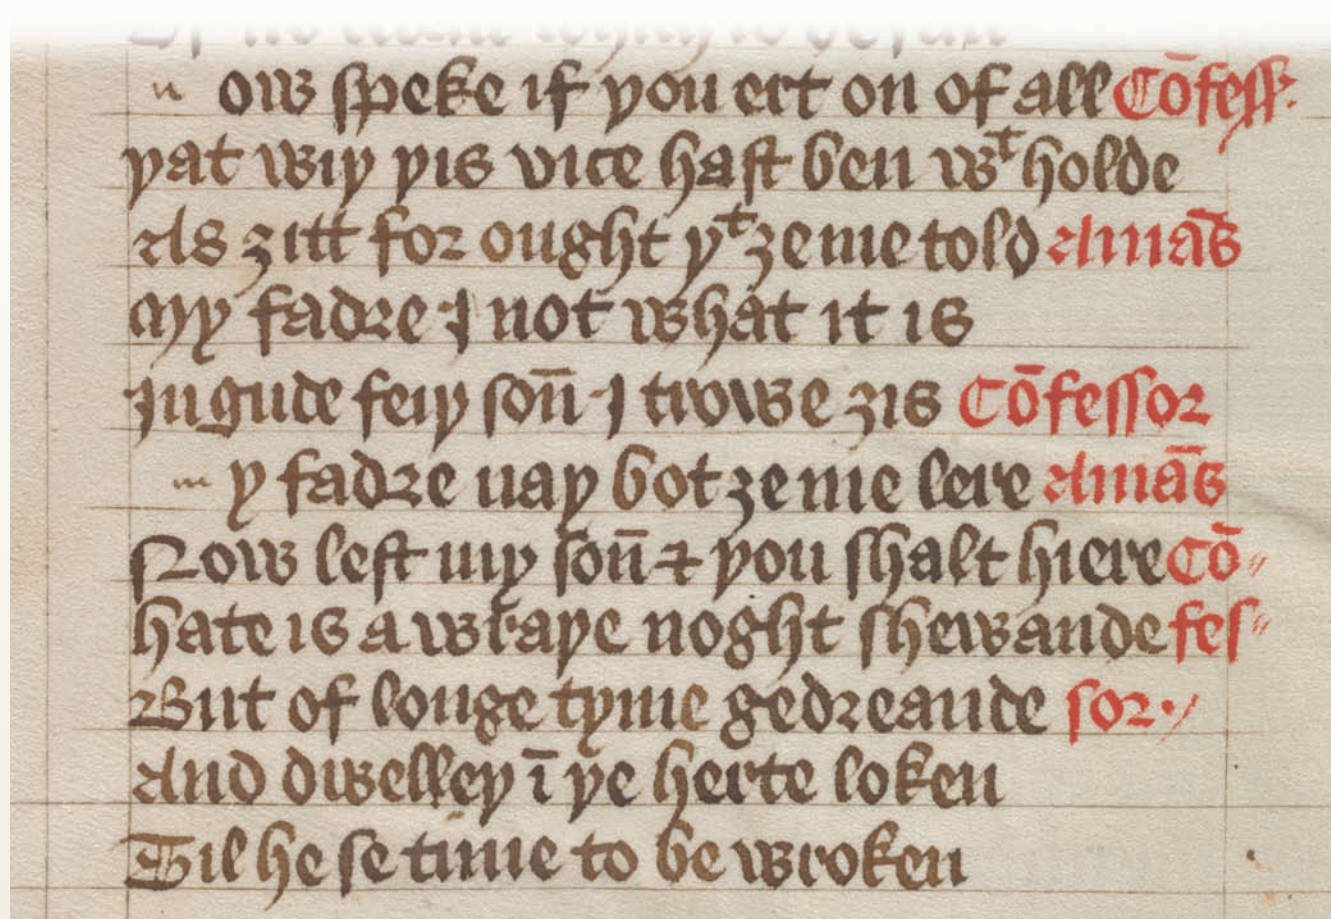 n ow speke if you ert on of all Cōfess.
yat wiy yis vice hast ben wᵗ holde
As ȝitt for ought yᵗ ȝe me told Amās
My fadre I not what it is
In gude feiy son̄ I trowe ȝis Cōfessor
m y fadre nay bot ȝe me lere Amās
Now lest my son̄ ⁊ you shalt hiere Cō〃
hate is a wraye noght shewande fes〃
But of longe tyme gedreande sor·/
And dwelley ī ye herte loken
Til he se time to be wroken